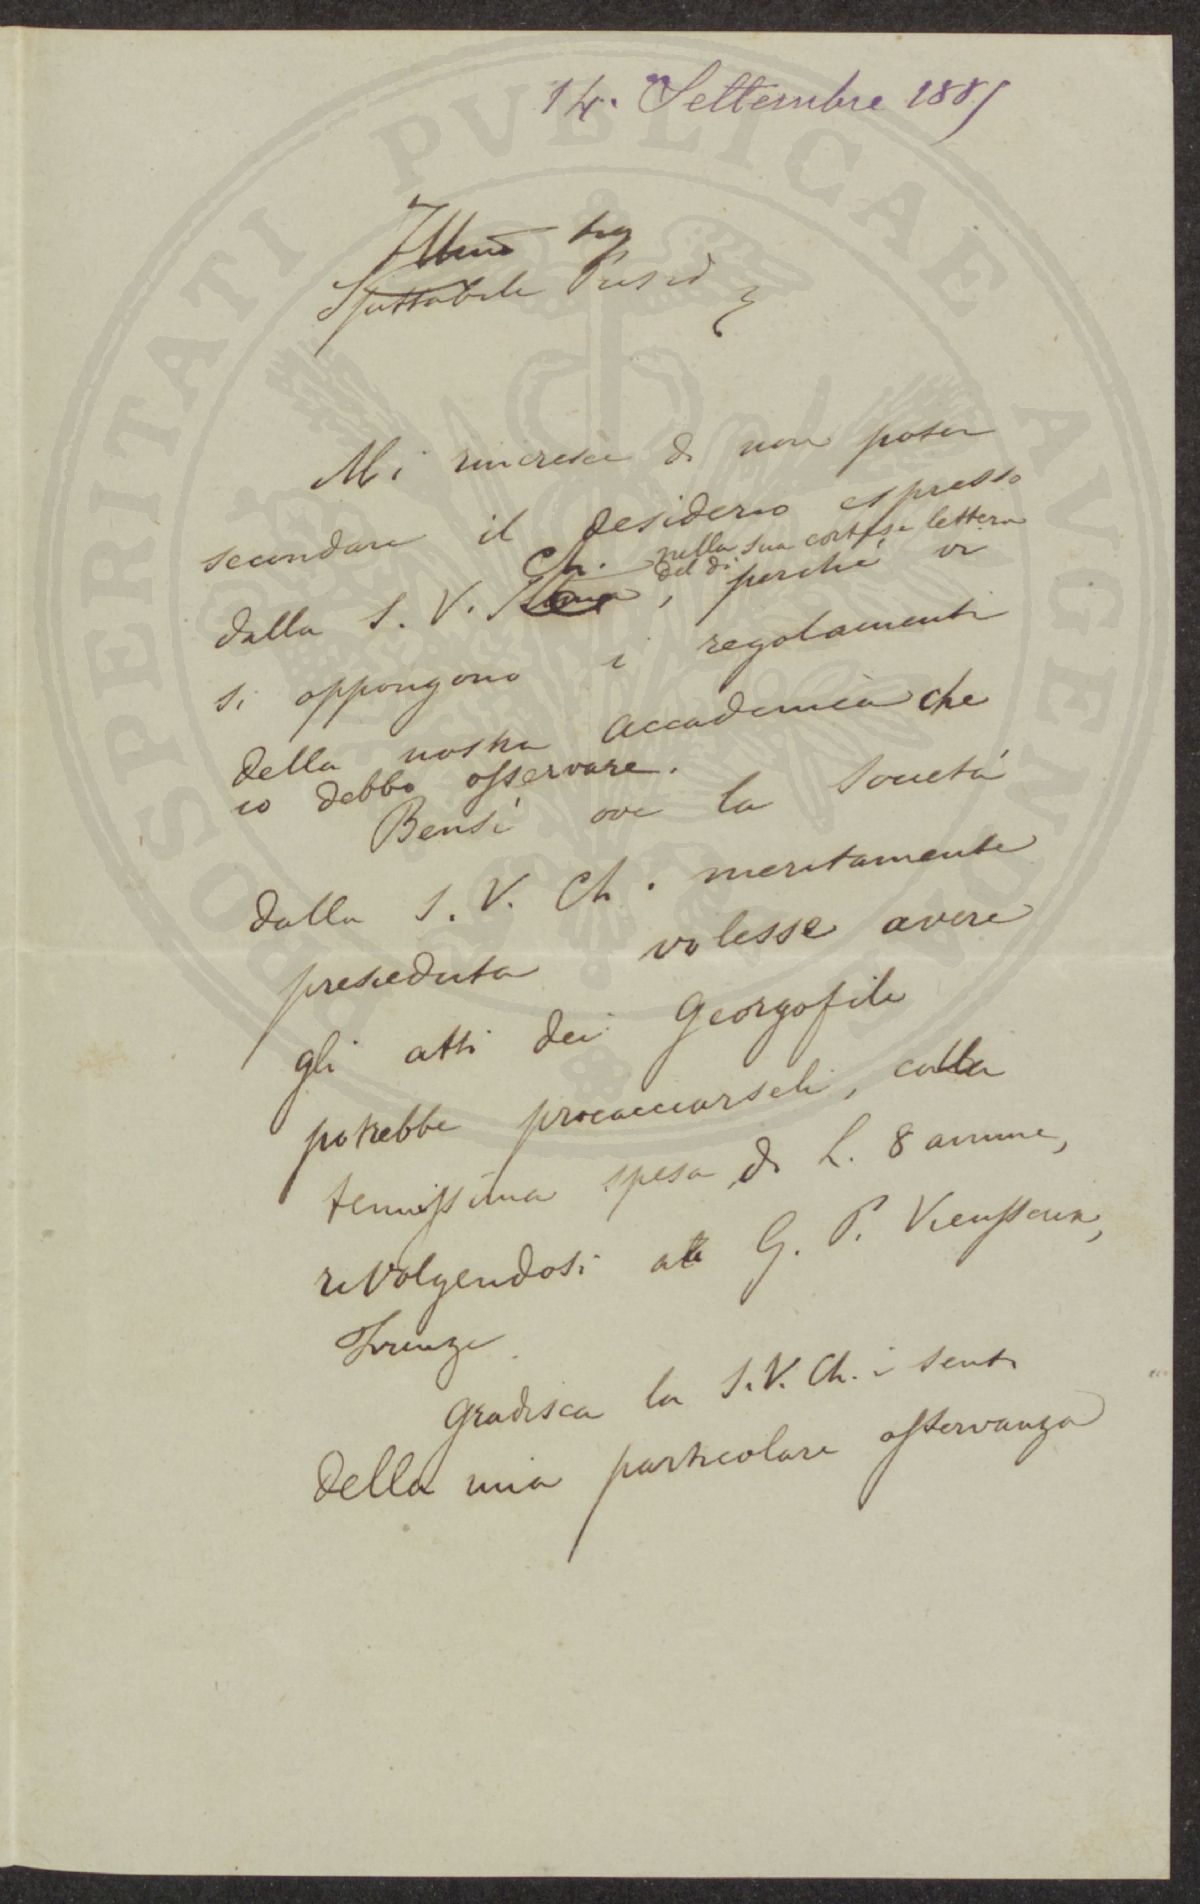 14. Settembre 1881
Illmo Sig
Spettabile Presid
Mi rincresce di non poter
secondare il desiderio espresso
nella sua cortese lettera
del di
dalla S. V. Ch. , perché vi
si oppongono i regolamenti
della nostra Accademia che
io debbo osservare.
Bensì ove la Società
dalla S. V. Ch. meritamente
presieduta volesse avere
gli atti dei Georgofili
potrebbe procacciarseli, colla
tenuissima spesa di L. 8 annue,
rivolgendosi a G. P. Vieusseux,
Firenze
Gradisca la S. V. Ch. i senti
della mia particolare osservanza
PROSPERITATI PVBLICAE AVGENDAE